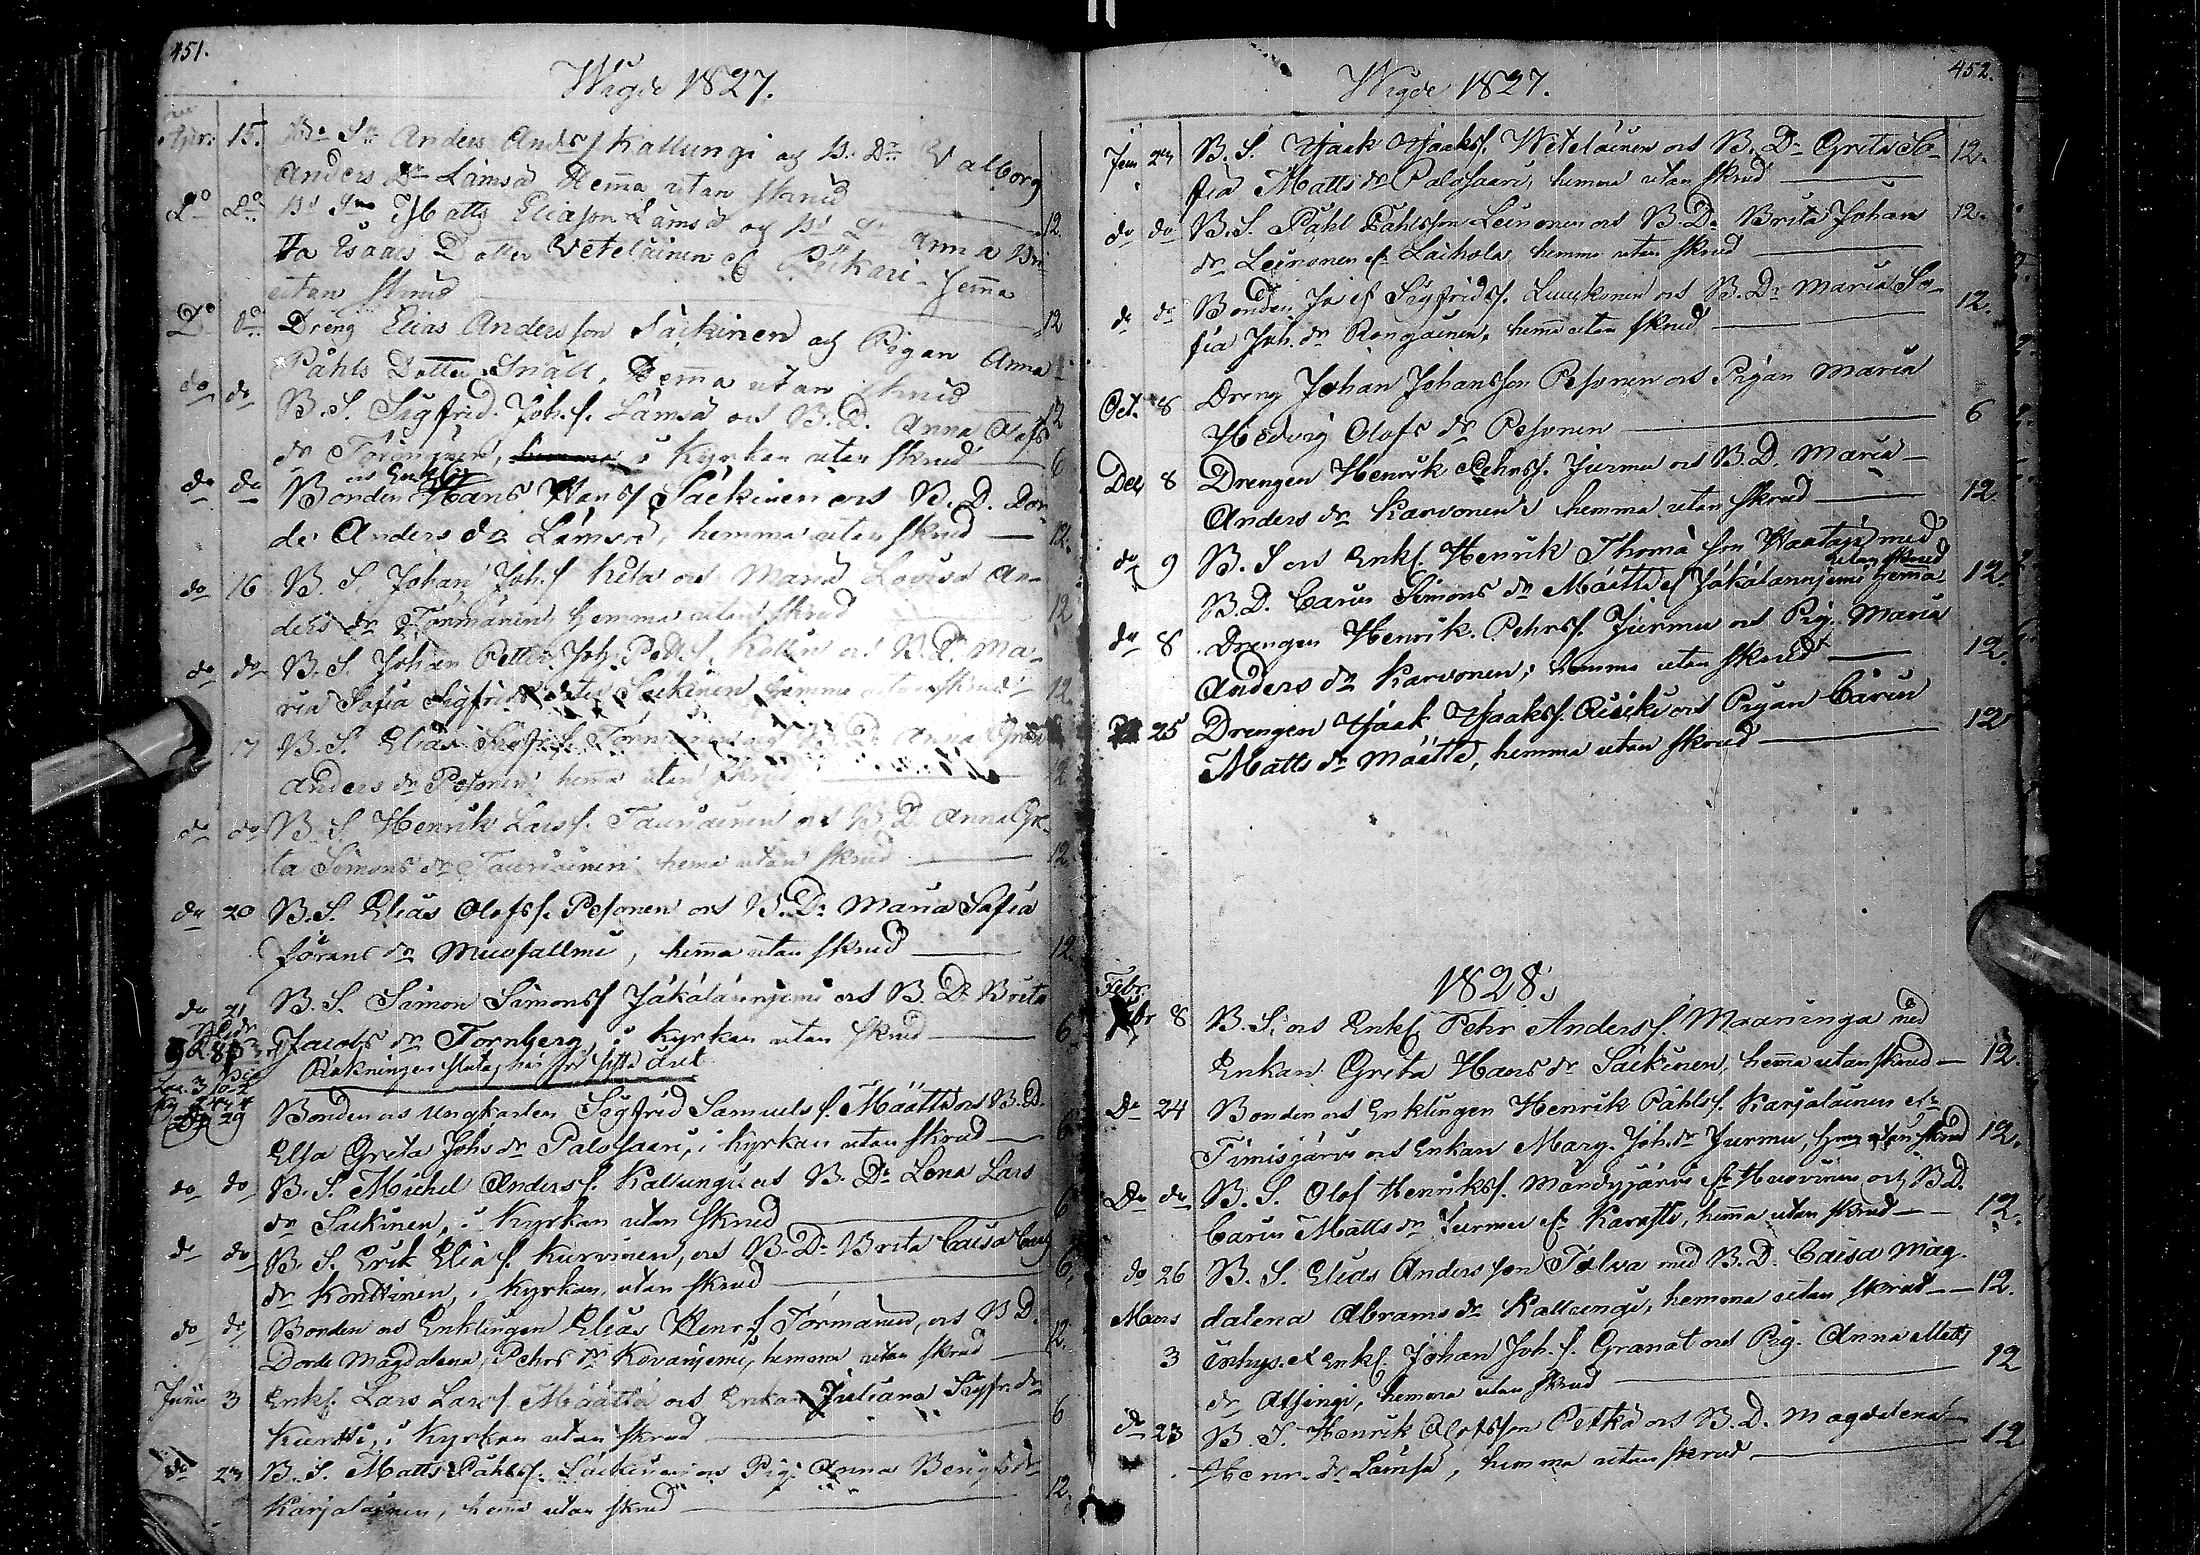 451.
Wigde 1827.
15. Bde Sn Anders Andsf Kallungi og B. Dr Valborg
Anders Dr Lämsä Hema utan skrud
Do Do Bd Sn Matts Eliason Lämsä og Bd Dr Anna Bri-
ta Isaacs Dotter Veteläinen ef Pätkäri hema
utan skrud 12
Do do Dreng Elias Andersson Säckinen og Pigan Anna
Påhls Dotter Snäll, Hema utan skrud 12
do do B. S. Sigfrid Joh. s. Lämsä och B. D. Anna Olofs
dr Törmänen, i Kyrkan utan skrud 6
och Enkling
do do Bonden Hans Hansf Säckinen och B. D. Dor-
de Anders dr Lämsä, hemma utan skrud 12.
do 16 B. S. Johan Joh. f Kela och Maria Lovisa An-
ders dr Törmänen hemma utan skrud 12
do do B. S. Johan Petter Joh. Pett. f. och B. D. Ma-
ria Safia Sigfrids dotter Säckinen hemma utan skrud 12.
17 B. S. Elias Sigfr. f. Törmänen och B. D. Anna Greta
Anders dr Pesonen hema utan skrud 12
do do B. S. Henrik Larsf. Tauriainen och B. D. Anna Gre-
ta Simons dr Tauriainen hema utan skrud 12.
do 20 B. S. Elias Olofsf. Pesonen och B. Dr Maria Safia
Jörans dr Muosallmi, hema utan skrud 12.
do 21 B. S. Simon Simonsf Jäkäläinniemi och B. Dr Brita
Jacobs dr Tornberg i Kyrkan utan skrud 6
Räkningen slutas här för sista året
do 29 Bonden och Ungkarlen Sigfrid Samuels f. Määttä och B. D.
Elsa Greta Johs dr Palosaari, i Kyrkan utan skrud 6
do do B. S. Michel Andersf. Kallungi och B. Dr Lena Lars
dr Säckinen, i Kyrkan utan skrud 6
do do B. S. Erik Eliaf. Kurvinen, och B. Dr Brita Caisa
dr Konttinen, i Kyrkan utan skrud 6.
do do Bonden och Enklingen Elias Henrsf Törmänen, och B. D.
Dorde Magdalena Pehrs dr Kovaniemi, hemma utan skrud 12.
Juni 3 Enkl. Lars Larsf. Määttä och Enkan Juliana Sigfr. dr
Kurtti, i Kyrkan utan skrud 6
do 24 B. S. Matts Påhlsf. Säckinen och Pig. Anna Bengts dr
Karjalainen, hema utan skrud 12.
452.
Wigde 1827.
Juni 24 B. S. Isaak Isaaksf. Weteläinen och B. Dr Greta So-
fia Matts dr Palosaari, hemma utan skrud 12.
do do B. S. Påhl Påhlsson Leinonen och B. Dr Brita Johan
dr Leinonen ef. Laihola, hemma utan skrud 12.
do do Bonden Josef Sigfridsf. Luukonen och B. Dr Maria So-
fia Joh. dr Rongainen, hema utan skrud 12.
Oct. 8 Dreng Johan Johansson Pesonen och Pigan Maria
Hedvig Olofs dr Pesonen 6
Dec 8 Drengen Henrik Pehrsf. Jurmu och B. D. Maria
Anders dr Karvonen hemma utan skrud 12.
do 9 B. S och Enkl. Henrik Thomä son Waataja med
utan skrud
B. D. Carin Simons dr Määttä ef Jäkäläinniemi hema 12.
do 8 Drengen Henrik Pehrsf. Jurmu och Pig. Maria
Anders dr Karvonen; hemma utan skrud 12.
25 Drengen Isaak Isaaksf. och Pigan Carin
Matts dr Määttä, hemma utan skrud 12
1828.
Febr.
8 B. S. och Enkl. Pehr Andersf. Maaninga med
Enkan Greta Hans dr Säckinen, hema utan skrud 12.
Do 24 Bonden och Enklingen Henrik Påhlsf. Karjalainen ifr.
Timisjärvi och Enkan Marg. Joh. dr Jurmu, hema utan skrud 12.
Do do B. S. Olof Henriksf. Mändyjärvi ifr Huovinen och B. D.
Carin Matts dr Jurmu ifr. Karusti, hemma utan skrud 12.
do 26 B. S. Elias Andersson Tolva med B. D. Caisa Mag-
Mars dalena Abrams dr Kallungi, hemma utan skrud 12.
3 Inhys. och Enkl. Johan Joh. f. Granat och Pig. Anna Matts
dr Atsingi, hemma utan skrud 12
do 23 B. S. Henrik Olofsson Petkö och B. D. Magdalena
Henr. dr Lämsä, hemma utan skrud 12